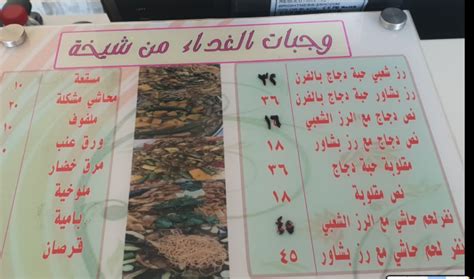 وجبات الغداء من شيخة
رز شعبي حبة دجاج بالفرن ٣٢
رز بشاور حبة دجاج بالفرن ٣٦
نص دجاج مع الرز الشعبي ١٦
نص دجاج مع رز بشاور ١٨
مقلوبة حبة دجاج ٣٦
نص مقلوبة ١٨
نفر لحم حاشي مع الرز الشعبي ٤٥
نفر لحم حاشي مع رز بشاور ٤٥
مسقعة ١٠
محاشي مشكلة ٢٠
ملفوف ١٠
ورق عنب
مرق خضار
ملوخية
بامية
قرصان